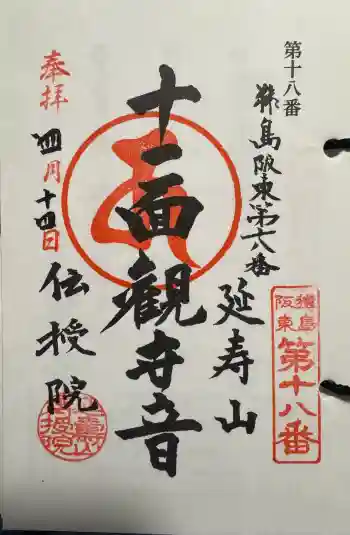 第十八番
猿島阪東第十八番
猿島
阪東
第十八番
延寿山
十一面觀世音
奉拝
四月十四日
伝授院